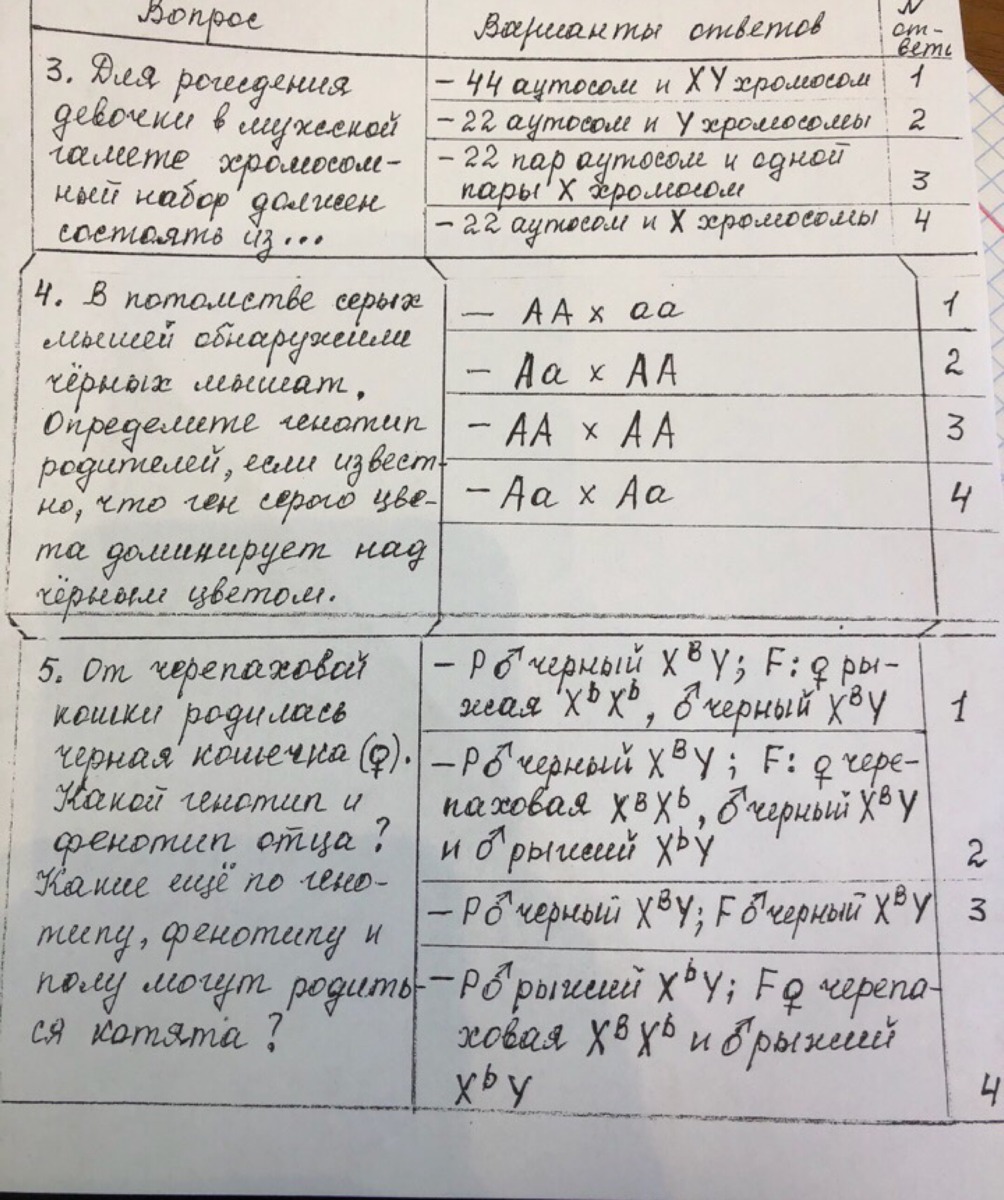 Вопрос
Варианты ответов
N
от-
вета
3. Для рождения
девочки в мужской
гамете хромосом-
ный набор должен
состоять из...
- 44 аутосом и XY хромосом
1
- 22 аутосом и Y хромосомы
2
- 22 пар аутосом и одной
пары X хромосом
3
- 22 аутосом и X хромосомы
4
4. В потомстве серых
мышей обнаружили
чёрных мышат.
Определите генотип
родителей, если извест-
но, что ген серого цве-
та доминирует над
чёрным цветом.
- AA x aa
1
- Aa x AA
2
- AA x AA
3
- Aa x Aa
4
5. От черепаховой
кошки родилась
черная кошечка (♀).
Какой генотип и
фенотип отца?
Какие ещё по гено-
типу, фенотипу и
полу могут родить-
ся котята?
- P ♂ черный XᴮY; F: ♀ ры-
жая XᵇXᵇ, ♂ черный XᴮY
1
- P ♂ черный XᴮY; F: ♀ чере-
паховая XᴮXᵇ, ♂ черный XᴮY
и ♂ рыжий XᵇY
2
- P ♂ черный XᴮY; F ♂ черный XᴮY
3
- P ♂ рыжий XᵇY; F ♀ черепа-
ховая XᴮXᵇ и ♂ рыжий
XᵇY
4